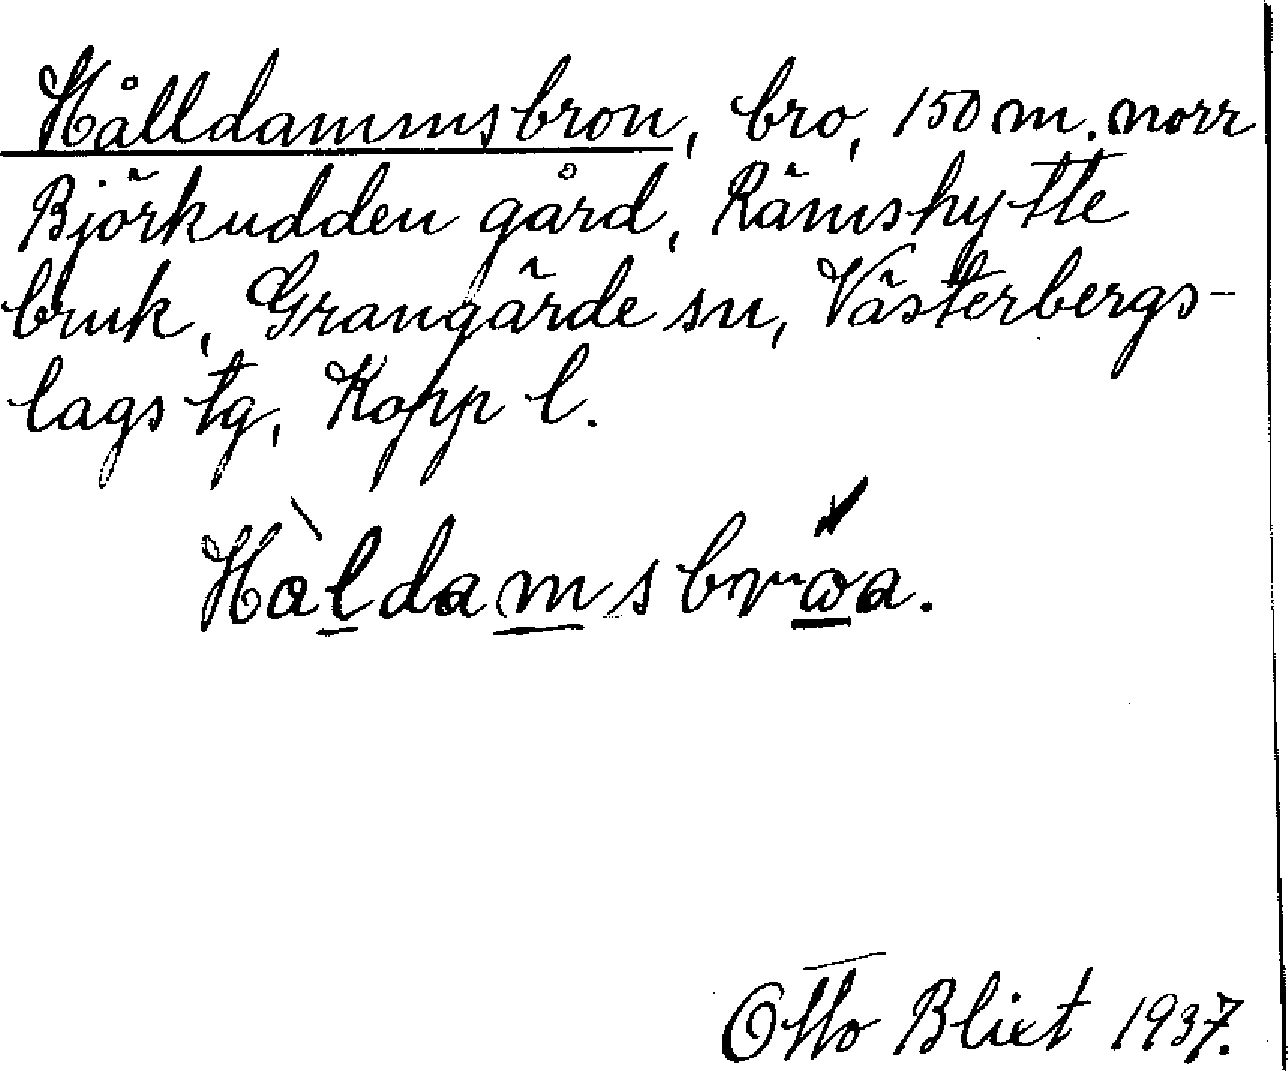 Hålldammsbron, bro, 150 m. norr
Björkudden gård, Rämshytte
bruk, Grangärde sn, Västerbergs-
lags tg, Kopp l.
Hòldamsbrωa.
Otto Blixt 1937.